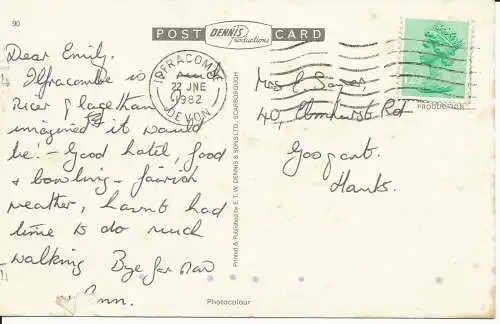 90
POST DENNIS Productions CARD
Dear Emily.
Ilfracombe is much
nicer place than
imagined it would
be! - Good hotel, food
& bowling - fairish
weather, havnt had
time to do much
walking Bye for now
Ann.
ILFRACOMBE
22 JNE
1982
DEVON
Printed & Published by E.T.W. DENNIS & SONS LTD., SCARBOROUGH
PRODUCTION
Mrs E
40, Elmhurst Rd
Hants.
Photocolour